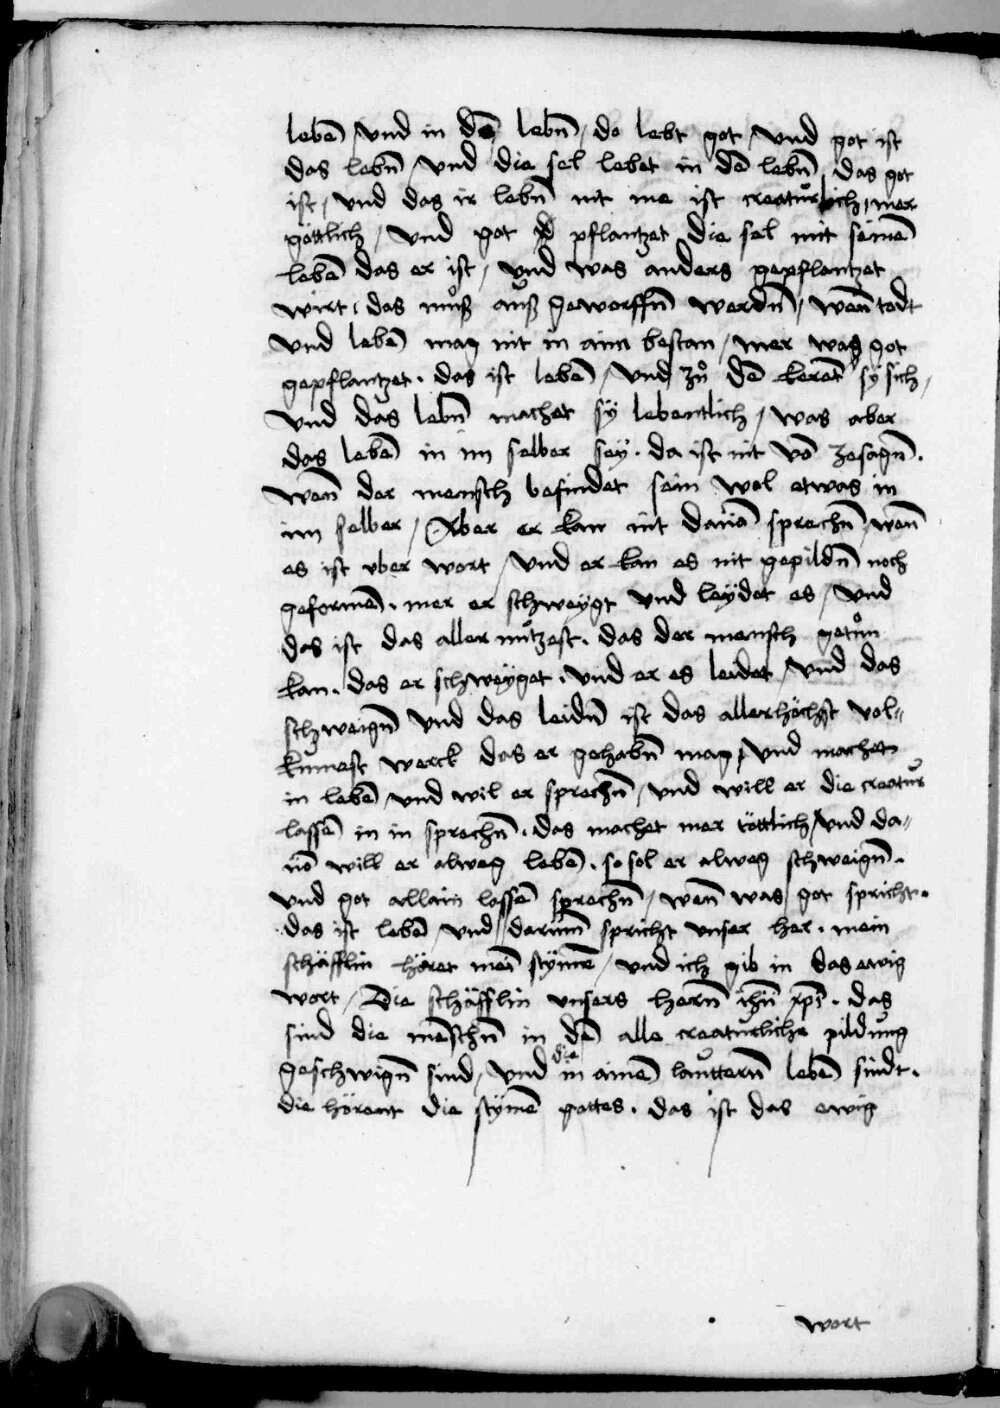 lebē / vnd in dē lebn̄ / do lebt got / vnd got ist
das lebn̄ / vnd die sel lebet in dē lebn̄ / das got
ist / vnd das ir lebn̄ nit me ist creatůrlich / mer
götlich / vnd got pflantzet die sel mit seinē
lebē das er ist / vnd was anders gepflantzet
wirt · das můß auß geworffn̄ werdn̄ / wen̄ todt
vnd lebē mag nit in ainn bestan / mer was got
gepflantzet · das ist lebē / vnd zů dē kerēt sÿ sich /
vnd das lebn̄ machet sÿ lebentlich / was aber
das lebē in im selber seÿ · da ist nit vō zesagn̄ ·
wen̄ der mensch befindet sein wol etwas in
im selber / Aber er kan nit dauō sprechn̄ / wen̄
es ist vber wort / vnd er kan es nit gepildn̄ noch
geformē · mer er schweÿgt vnd leÿdet es / vnd
das ist das aller nützest · das der mensch getůn
kan · das er schweÿget · vnd er es leidet / vnd das
schweign̄ vnd das leidn̄ ist das allerhöchst vol〃
kumest werck das er gehabn̄ mag / vnd machet
in lebē / vnd wil er sprechn̄ / vnd will er die creatůr
lassē in in sprechn̄ · das machet mer töttlich / vnd da〃
uō will er alweg lebē · so sol er alweg schweign̄ ·
vnd got allain lassē sprechn̄ / wen̄ was got spricht ·
das ist lebē / vnd darūm spricht vnser her · mein
schäfflin höret mei stÿmē / vnd ich gib in das ewig
wort / Die schäfflin vnsers hern̄ ih̄u xp̄i · das
sind die mēschn̄ in dē alle creatůrliche pildung
geschwign̄ sind / vnd die in ainē lauttern̄ lebē sindt ·
die hörent die stÿmē gottes · das ist das ewig
wort